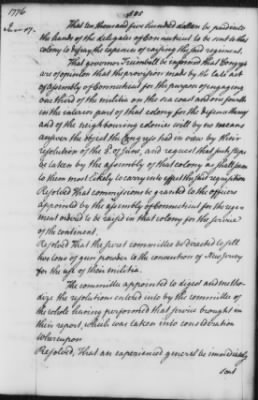 1776
June 17.
That ten thousand five hundred dollars be paid into
the hands of the delegates of Connecticut to be sent to that
colony to defray the expences of raising the said regiment.
That governor Trumbull be informed that Congress
are of opinion that the provision made by the late act
of assembly of Connecticut for the purpose of engaging
one third of the militia on the sea coast and one fourth
in the interior part of that colony for the defence thereof
and of the neighbouring colonies will by no means
answer the object the Congress had in view by their
resolution of the of June, and request that such steps
be taken by the assembly of that colony as shall seem
to them most likely to carry into effect the said regulation
Resolved That commissions be granted to the officers
appointed by the assembly of Connecticut for the regi
ment ordered to be raised in that colony for the service
of the continent.
Resolved That the secret committee be directed to sell
two tons of gun powder to the convention of New Jersey
for the use of their militia.
The committee appointed to digest and metho-
dize the resolutions entered into by the committee of
the whole having performed that service brought in
their report, which was taken into consideration
Whereupon
Resolved, That an experienced general be immediately
sent